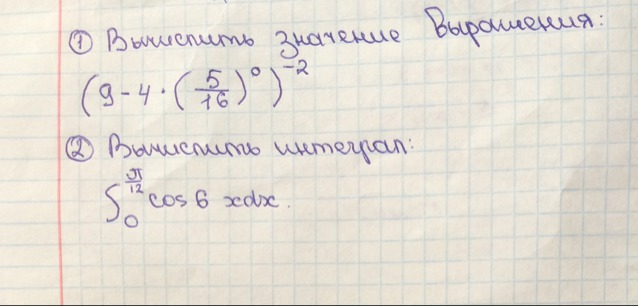 ① Вычислить значение Выражения:
(9 - 4 · (5/16)^0)^-2
② Вычислить интеграл:
∫_0^(π/12) cos 6 xdx.